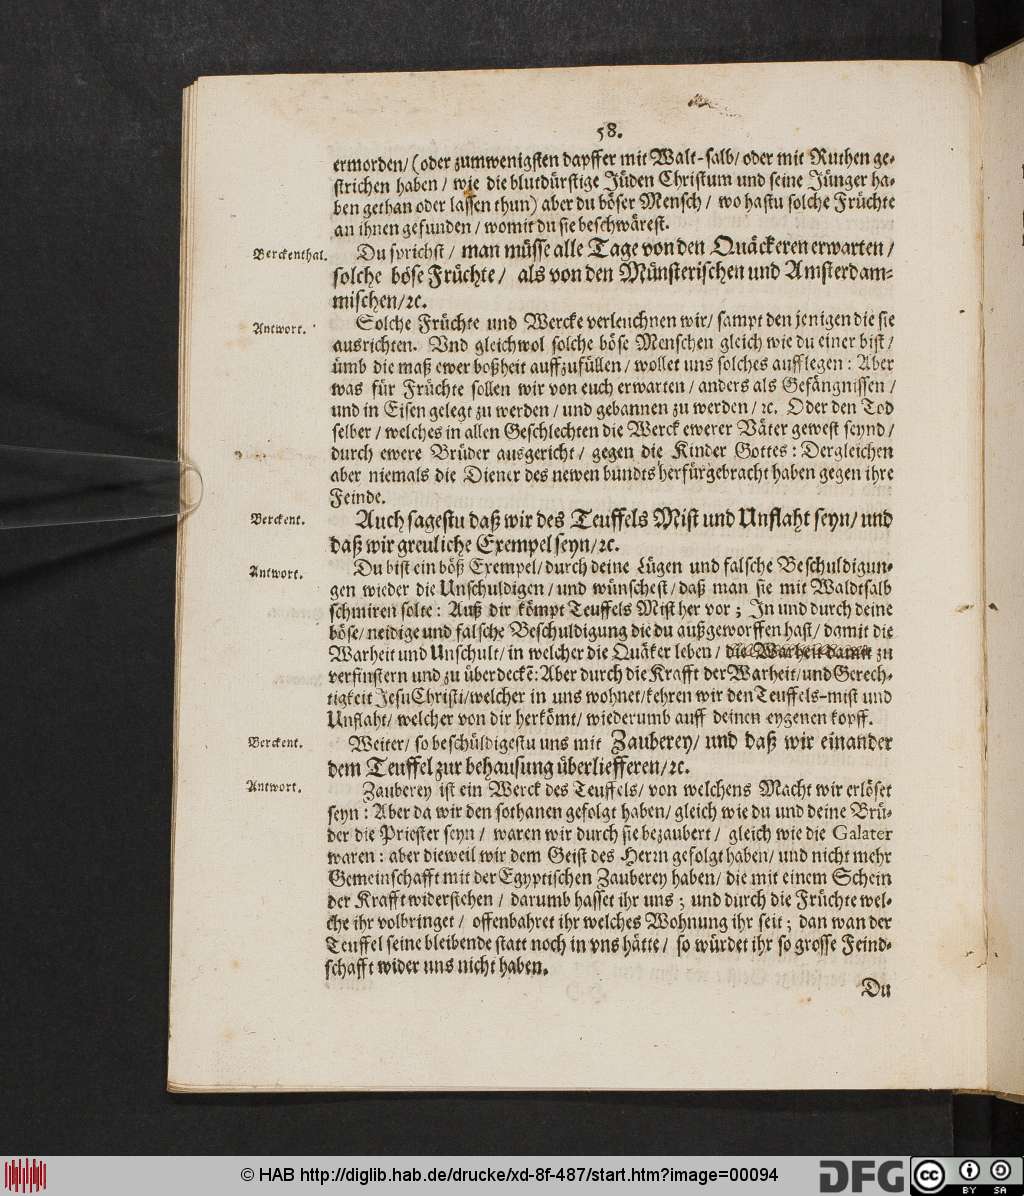 58.
ermorden/ (oder zumwenigsten dapffer mit Walt-salb/ oder mit Ruthen ge-
strichen haben / wie die blutdürstige Jüden Christum und seine Jünger ha-
ben gethan oder lassen thun) aber du böser Mensch / wo hastu solche Früchte
an ihnen gefunden / womit du sie beschwärest.
Berckenthal.
Du sprichst / man müsse alle Tage von den Quäckeren erwarten /
solche böse Früchte / als von den Münsterischen und Amsterdam-
mischen/ ꝛc.
Antwort.
Solche Früchte und Wercke verleuchnen wir/ sampt den jenigen die sie
ausrichten. Vnd gleichwol solche böse Menschen gleich wie du einer bist /
ümb die maß ewer boßheit auffzufüllen / wollet uns solches aufflegen : Aber
was für Früchte sollen wir von euch erwarten / anders als Gefängnissen /
und in Eisen gelegt zu werden / und gebannen zu werden / ꝛc. Oder den Tod
selber / welches in allen Geschlechten die Werck ewerer Väter gewest seynd /
durch ewere Brüder ausgericht / gegen die Kinder Gottes : Dergleichen
aber niemals die Diener des newen bundts herfürgebracht haben gegen ihre
Feinde.
Berckent.
Auch sagestu daß wir des Teuffels Mist und Unflaht seyn/ und
daß wir greuliche Exempel seyn/ ꝛc.
Antwort.
Du bist ein böß Exempel/ durch deine Lügen und falsche Beschuldigun-
gen wieder die Unschuldigen / und wünschest/ daß man sie mit Waldtsalb
schmiren solte : Auß dir kömpt Teuffels Mist her vor ; In und durch deine
böse/ neidige und falsche Beschuldigung die du außgeworffen hast/ damit die
Warheit und Unschult/ in welcher die Quäker leben / die Warheit damit zu
verfinstern und zu überdeckẽ: Aber durch die Krafft der Warheit/ und Gerech-
tigkeit Jesu Christi/ welcher in uns wohnet/ kehren wir den Teuffels-mist und
Unflaht/ welcher von dir herkömt/ wiederumb auff deinen eygenen kopff.
Berckent.
Weiter/ so beschüldigestu uns mit Zauberey/ und daß wir einander
dem Teuffel zur behausung überliefferen/ ꝛc.
Antwort.
Zauberey ist ein Werck des Teuffels/ von welchens Macht wir erlöset
seyn : Aber da wir den sothanen gefolgt haben/ gleich wie du und deine Brü-
der die Priester seyn / waren wir durch sie bezaubert / gleich wie die Galater
waren : aber dieweil wir dem Geist des Herrn gefolgt haben/ und nicht mehr
Gemeinschafft mit der Egyptischen Zauberey haben/ die mit einem Schein
der Krafft widerstehen / darumb hasset ihr uns ; und durch die Früchte wel-
che ihr volbringet / offenbahret ihr welches Wohnung ihr seit ; dan wan der
Teuffel seine bleibende statt noch in vns hätte / so würdet ihr so grosse Feind-
schafft wider uns nicht haben.
Du
© HAB http://diglib.hab.de/drucke/xd-8f-487/start.htm?image=00094
DFG
cc BY SA